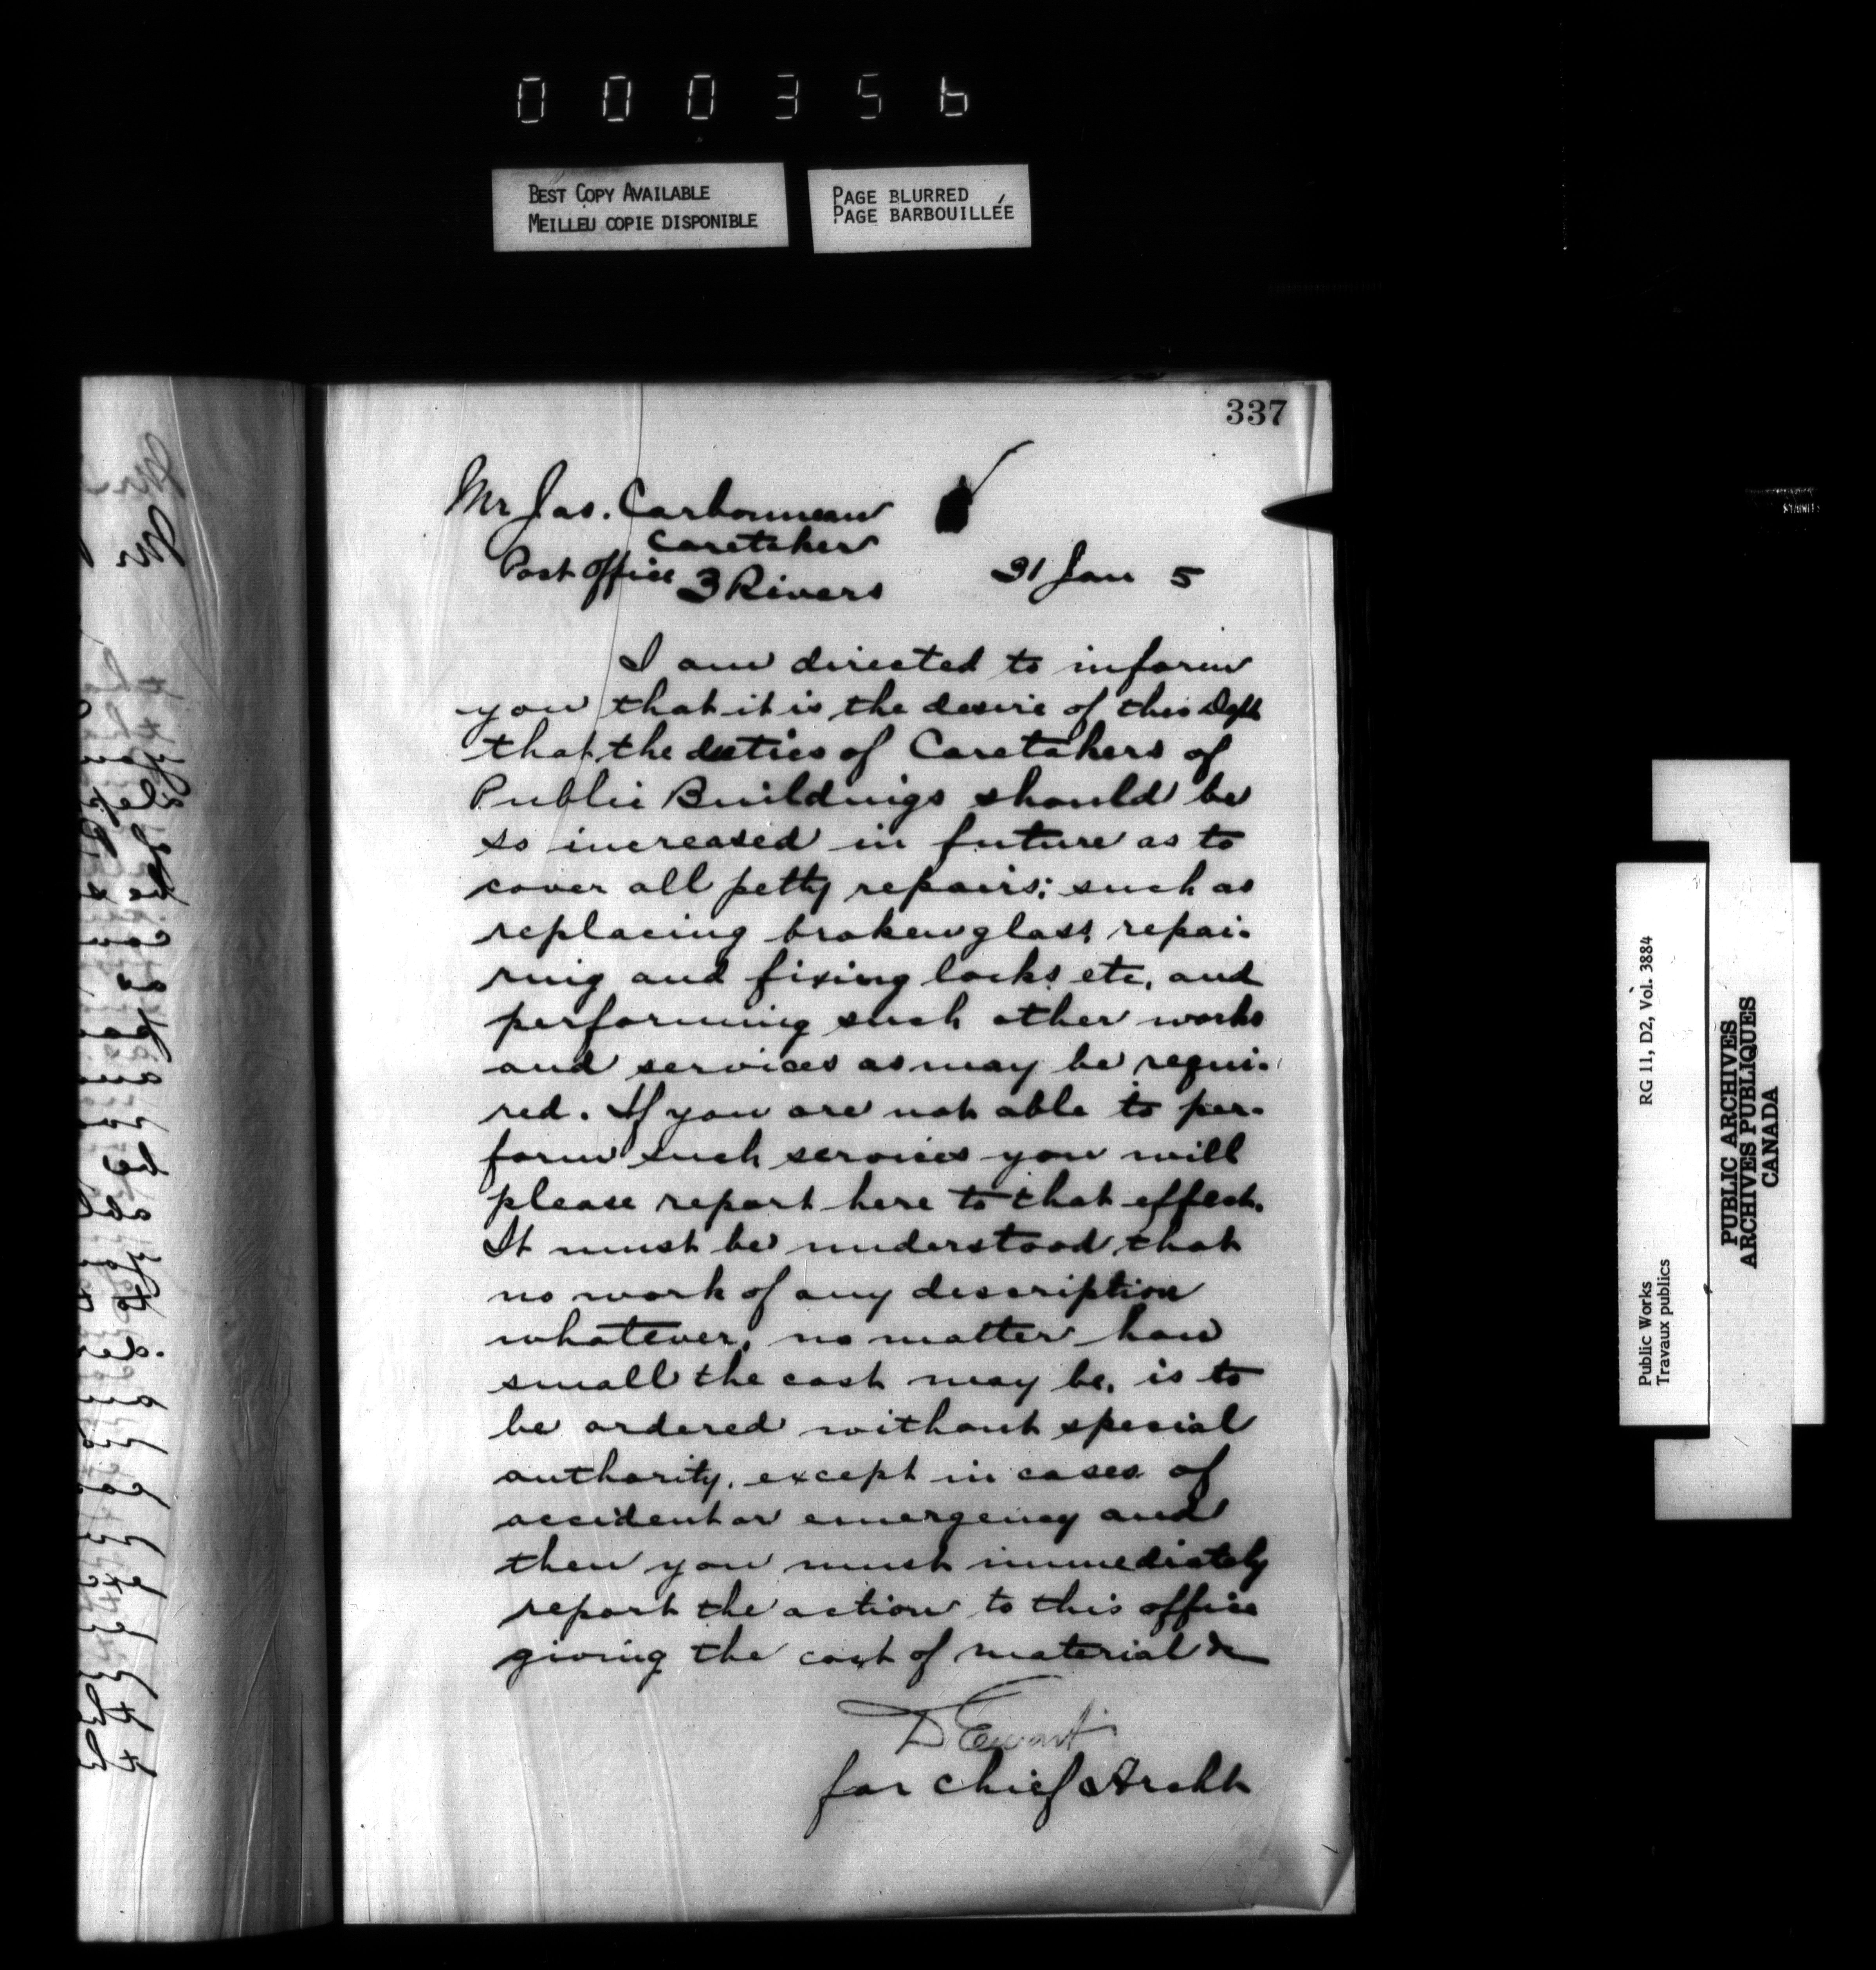 000356
BEST COPY AVAILABLE
MEILLEU COPIE DISPONIBLE
PAGE BLURRED
PAGE BARBOUILLÉE
337
Mr Jas. Carbonneau
Caretaker
Post Office 3 Rivers
31 Jan 5
I am directed to inform
you that it is the desire of this Dept
that the duties of Caretakers of
Public Buildings should be
so increased in future as to
cover all petty repairs; such as
replacing broken glass, repai-
ring and fixing locks, etc, and
performing such other works
and services as may be requi-
red. If you are not able to per-
form such services you will
please report here to that effect.
It must be understood that
no work of any description
whatever, no matter how
small the cost may be, is to
be ordered without special
authority, except in cases of
accident or emergency and
then you must immediately
report the action to this office
giving the cost of material &
D Ewart
for Chief Archt
Public Works
Travaux publics
RG 11, D2, Vol. 3884
PUBLIC ARCHIVES
ARCHIVES PUBLIQUES
CANADA